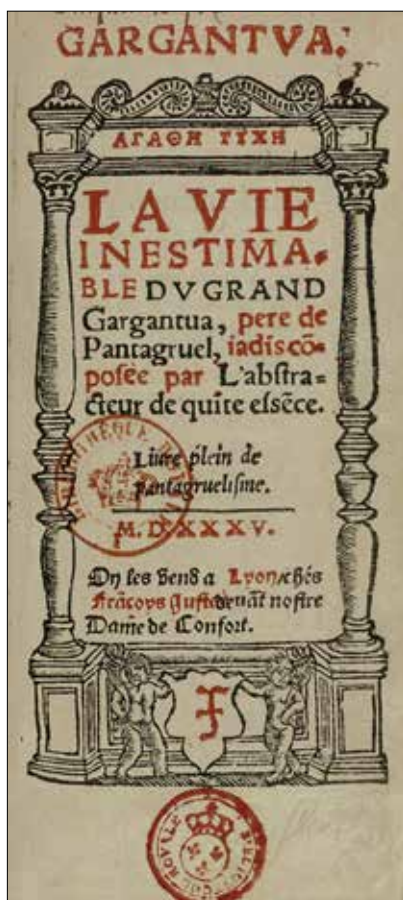 GARGANTVA.
ΑΓΑΘΗ ΤΥΧΗ
LA VIE
INESTIMA-
BLE DV GRAND
Gargantua, pere de
Pantagruel, iadis cõ-
posée par L'abstra-
cteur de quĩte essẽce.
Liure plein de
pantagruelisme.
M. D. XXXV.
On les vend a Lyon, chés
Frãcoys Juste deuãt nostre
Dame de Confort.
F